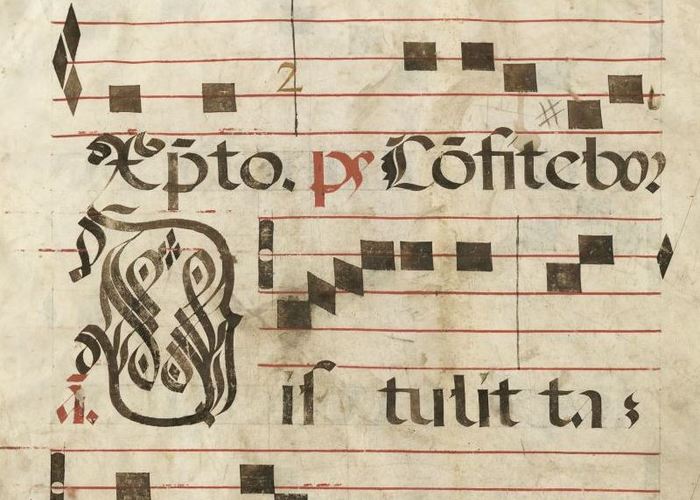 2
Xp̄to. ps Cōfitebor
ā. is tulit ta